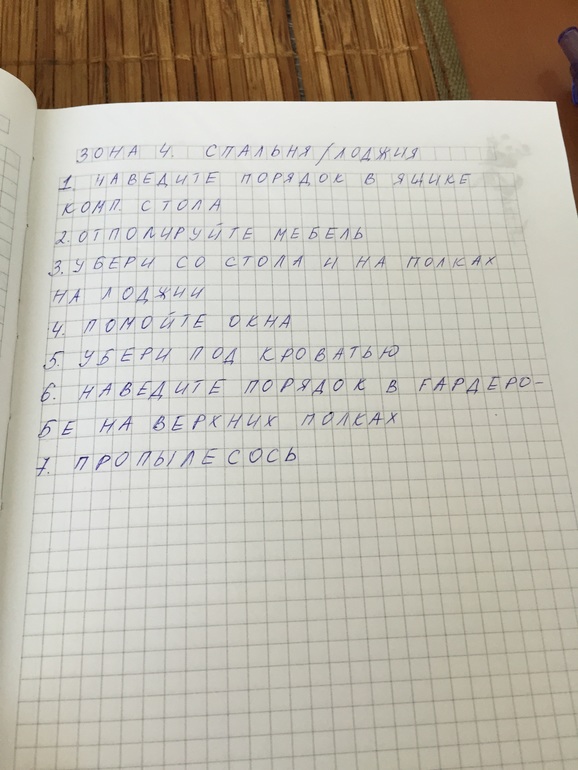 ЗОНА 4. СПАЛЬНЯ/ЛОДЖИЯ
1. НАВЕДИТЕ ПОРЯДОК В ЯЩИКЕ
КОМП. СТОЛА
2. ОТПОЛИРУЙТЕ МЕБЕЛЬ
3. УБЕРИ СО СТОЛА И НА ПОЛКАХ
НА ЛОДЖИИ
4. ПОМОЙТЕ ОКНА
5. УБЕРИ ПОД КРОВАТЬЮ
6. НАВЕДИТЕ ПОРЯДОК В ГАРДЕРО-
БЕ НА ВЕРХНИХ ПОЛКАХ
7. ПРОПЫЛЕСОСЬ